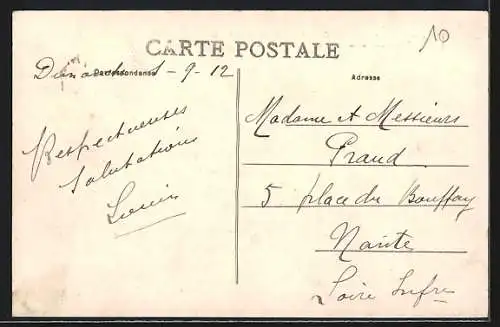 CARTE POSTALE
10
Correspondance
Dimanche 1-9-12
Respectueuses
Salutations
Adresse
Madame et Messieurs
Praud
5 place du Bouffay
Nante
Loire Infre